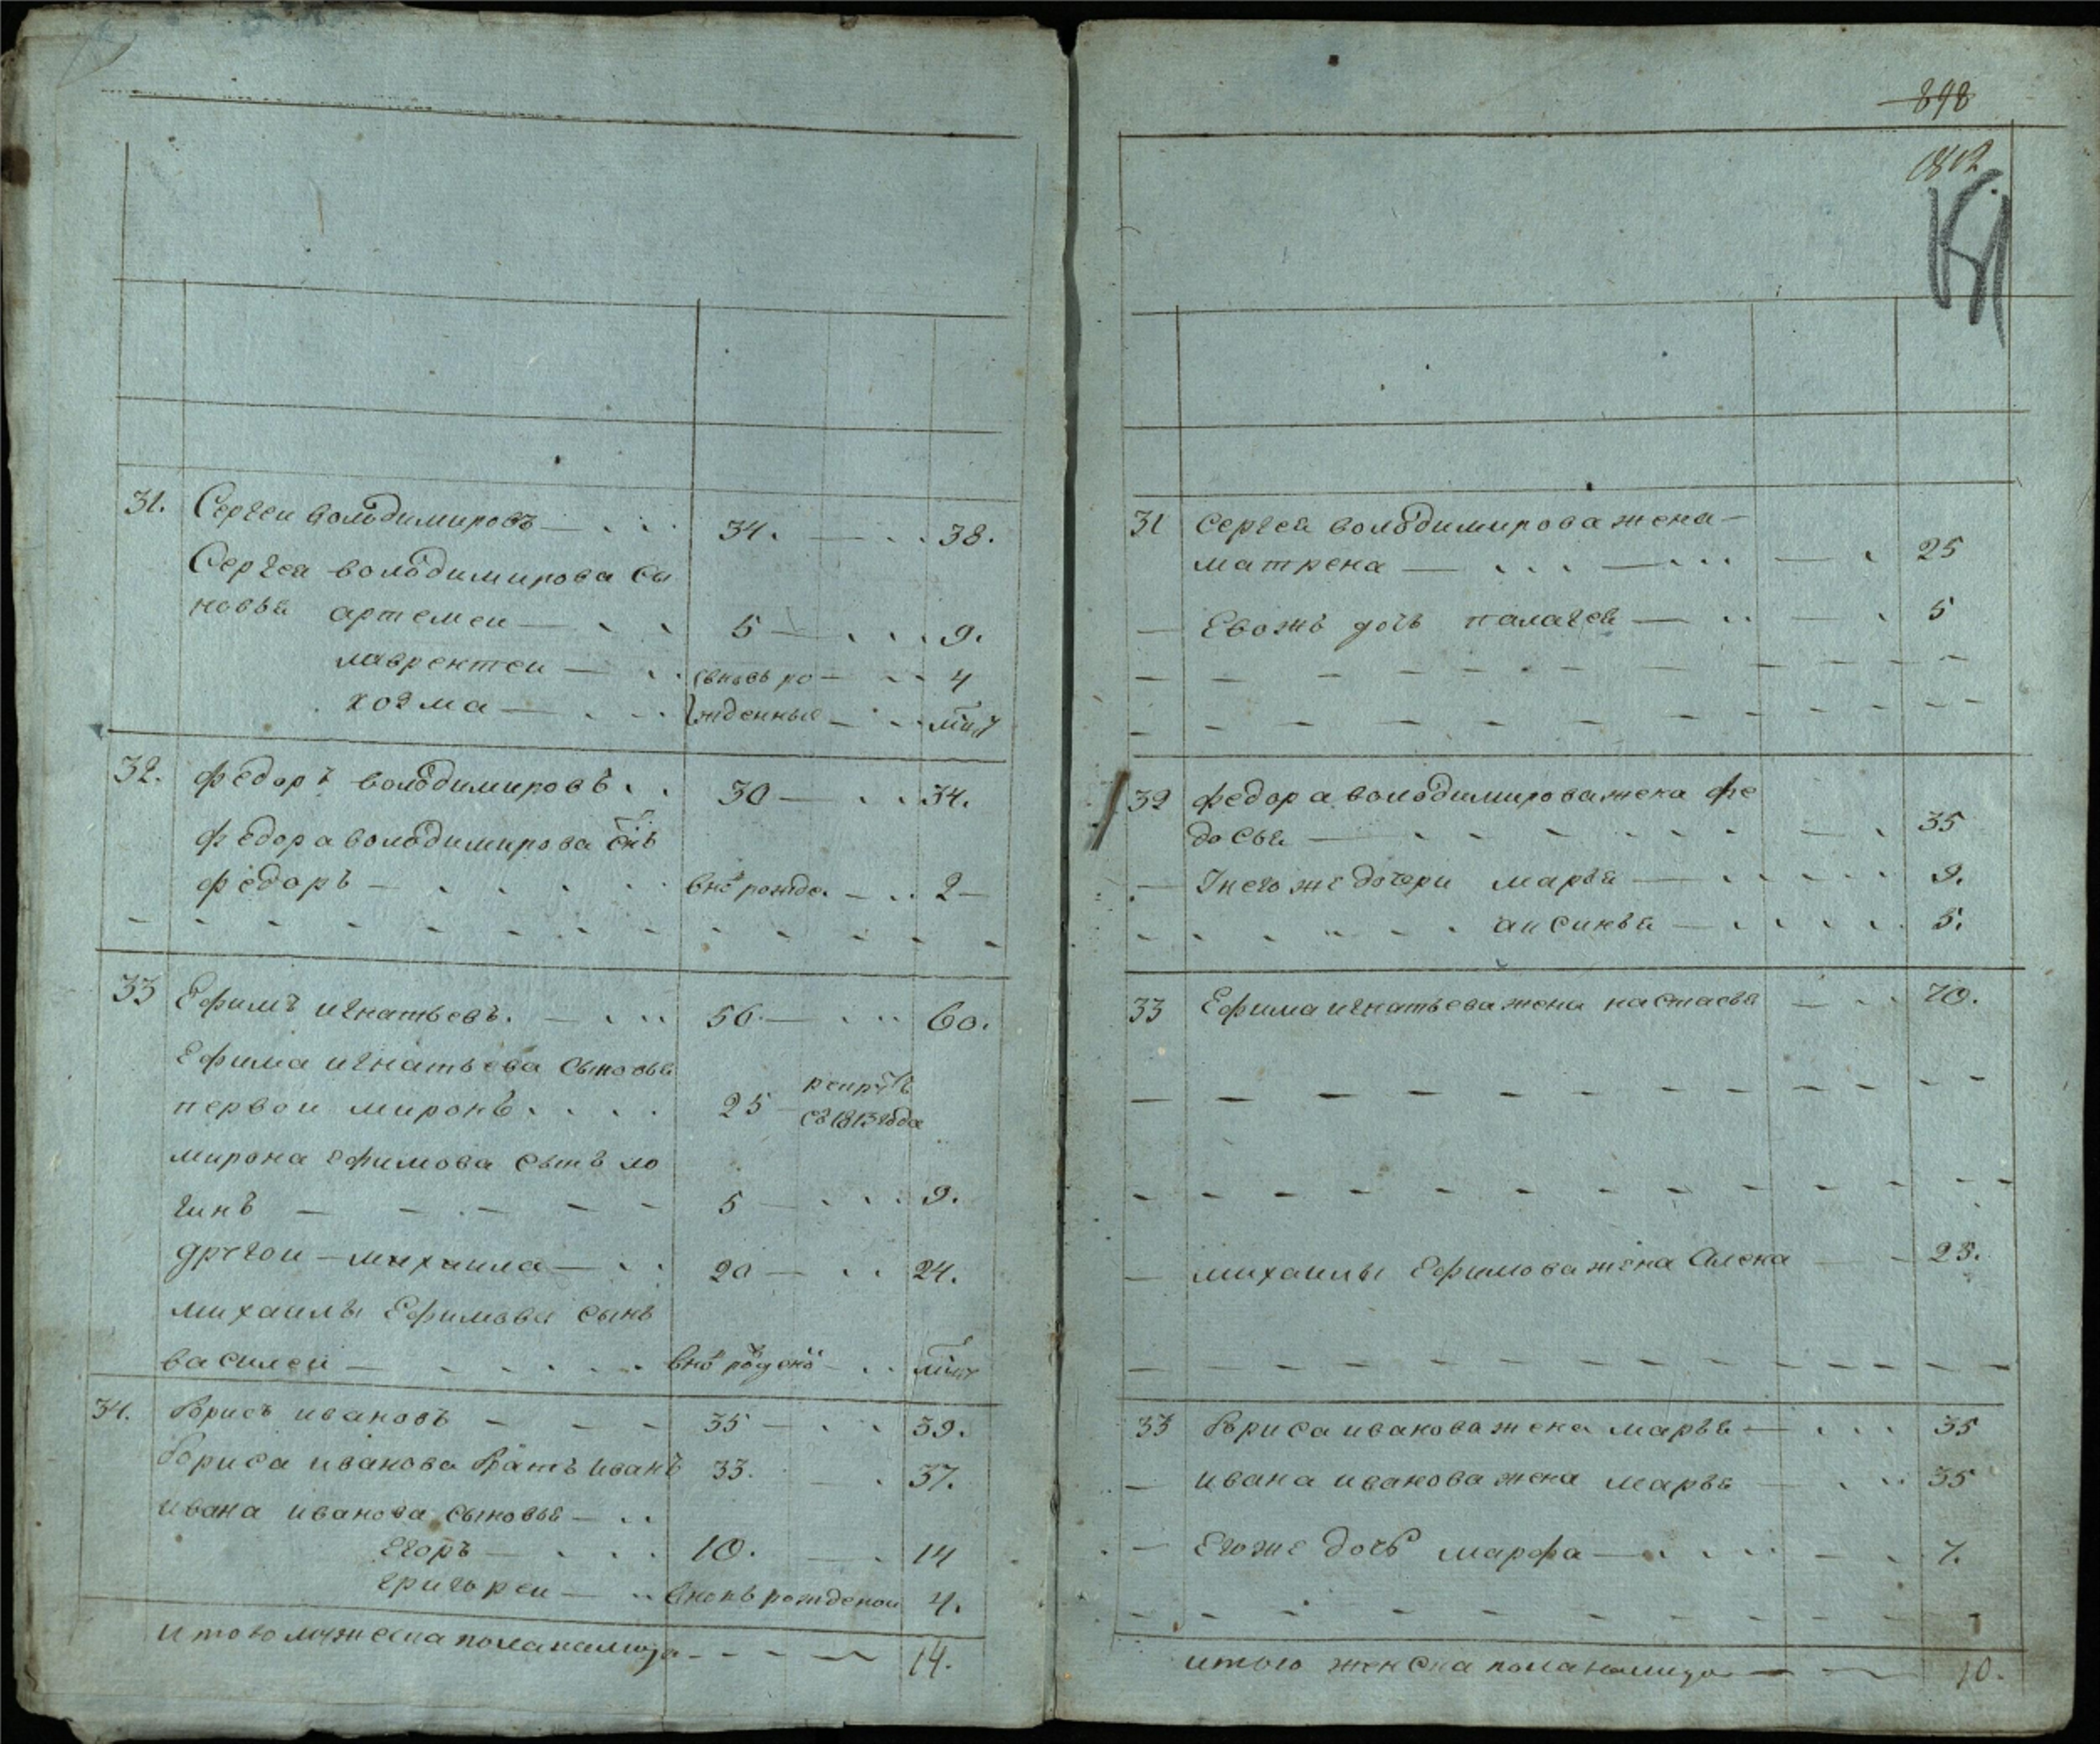 31. Сергеи володимировъ 34. 38.
Сергея володимирова сы
новья артемеи 5 9.
лаврентеи вновь ро 4
козма жденныя
32. федоръ володимировъ 30 34.
федора володимирова снъ
федоръ внов рожде. 2
33 Ефимъ игнатьевъ. 56. 60.
Ефима игнатьева сыновья
первои миронъ 25 рекрутъ
съ 1813 года
мирона ефимова сынъ ло
гинъ 5 9.
другои михаила 20 24.
михаилы Ефимова сынъ
василеи
34. Борисъ ивановъ 35 39.
Бориса иванова Братъ иванъ 33. 37.
ивана иванова сыновья
Егоръ 10. 14
григореи вновь рожденои 4.
итого мужеска пола налицо 14.
848
1812
31 Сергея володимирова жена
матрена 25
Евожъ дочь палагея 5
32 федора володимирова жена фе
досья 35
Унего же дочери марья 9.
аксинья 5.
33 Ефима игнатьева жена настасья 70.
михаилы Ефимова жена Алена 25.
33 Бориса иванова жена марья 35
ивана иванова жена марья 35
Егоже дочь марфа 7.
итого женска пола налицо 10.